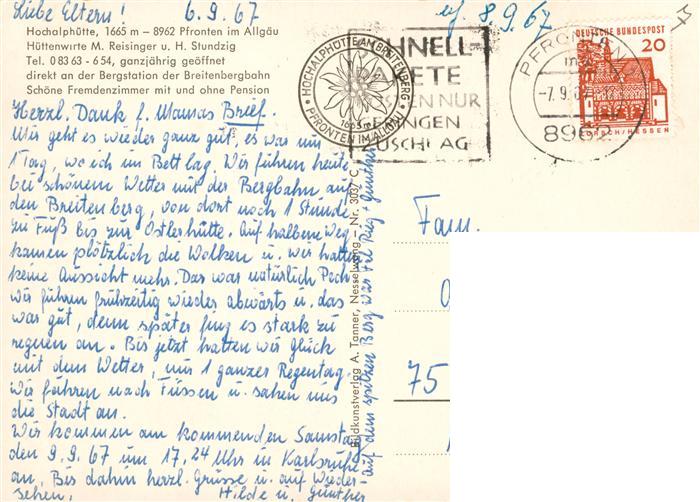 Liebe Eltern! 6.9.67
Hochalphütte, 1665 m – 8962 Pfronten im Allgäu
Hüttenwirte M. Reisinger u. H. Stundzig
Tel. 0 83 63 - 654, ganzjährig geöffnet
direkt an der Bergstation der Breitenbergbahn
Schöne Fremdenzimmer mit und ohne Pension
Herzl. Dank f. Mamas Brief.
Mir geht es wieder ganz gut, es war nur
1 Tag, wo ich im Bett lag. Wir fuhren heute
bei schönem Wetter mit der Bergbahn auf
den Breitenberg, von dort noch 1 Stunde
zu Fuß bis zur Ostlerhütte. Auf halbem Weg
kamen plötzlich die Wolken u. wir hatten
keine Aussicht mehr. Das war natürlich Pech
wir fuhren frühzeitig wieder abwärts u. das
war gut, denn später fing es stark zu
regnen an. Bis jetzt hatten wir Glück
mit dem Wetter, nur 1 ganzer Regentag.
Wir fuhren nach Füssen u. sahen uns
die Stadt an.
Wir kommen am kommenden Samstag
den 9.9.67 um 17,24 Uhr in Karlsruhe
an. Bis dahin herzl. Grüsse u. auf Wieder-
sehen, Hilde u. Günther
auf dem spitzen Berg war Frl. Rieg + Günther
Bildkunstverlag A. Tanner, Nesselwang – Nr. 3037 C
8.9.67
HOCHALPHÜTTE AM BREITENBERG
1665 m
PFRONTEN IM ALLGÄU
SCHNELL-
PAKETE
KOSTEN NUR
GERINGEN
ZUSCHLAG
PFRONTEN
-7.9.67
8962
DEUTSCHE BUNDESPOST
20
LORSCH/HESSEN
Fam.
75